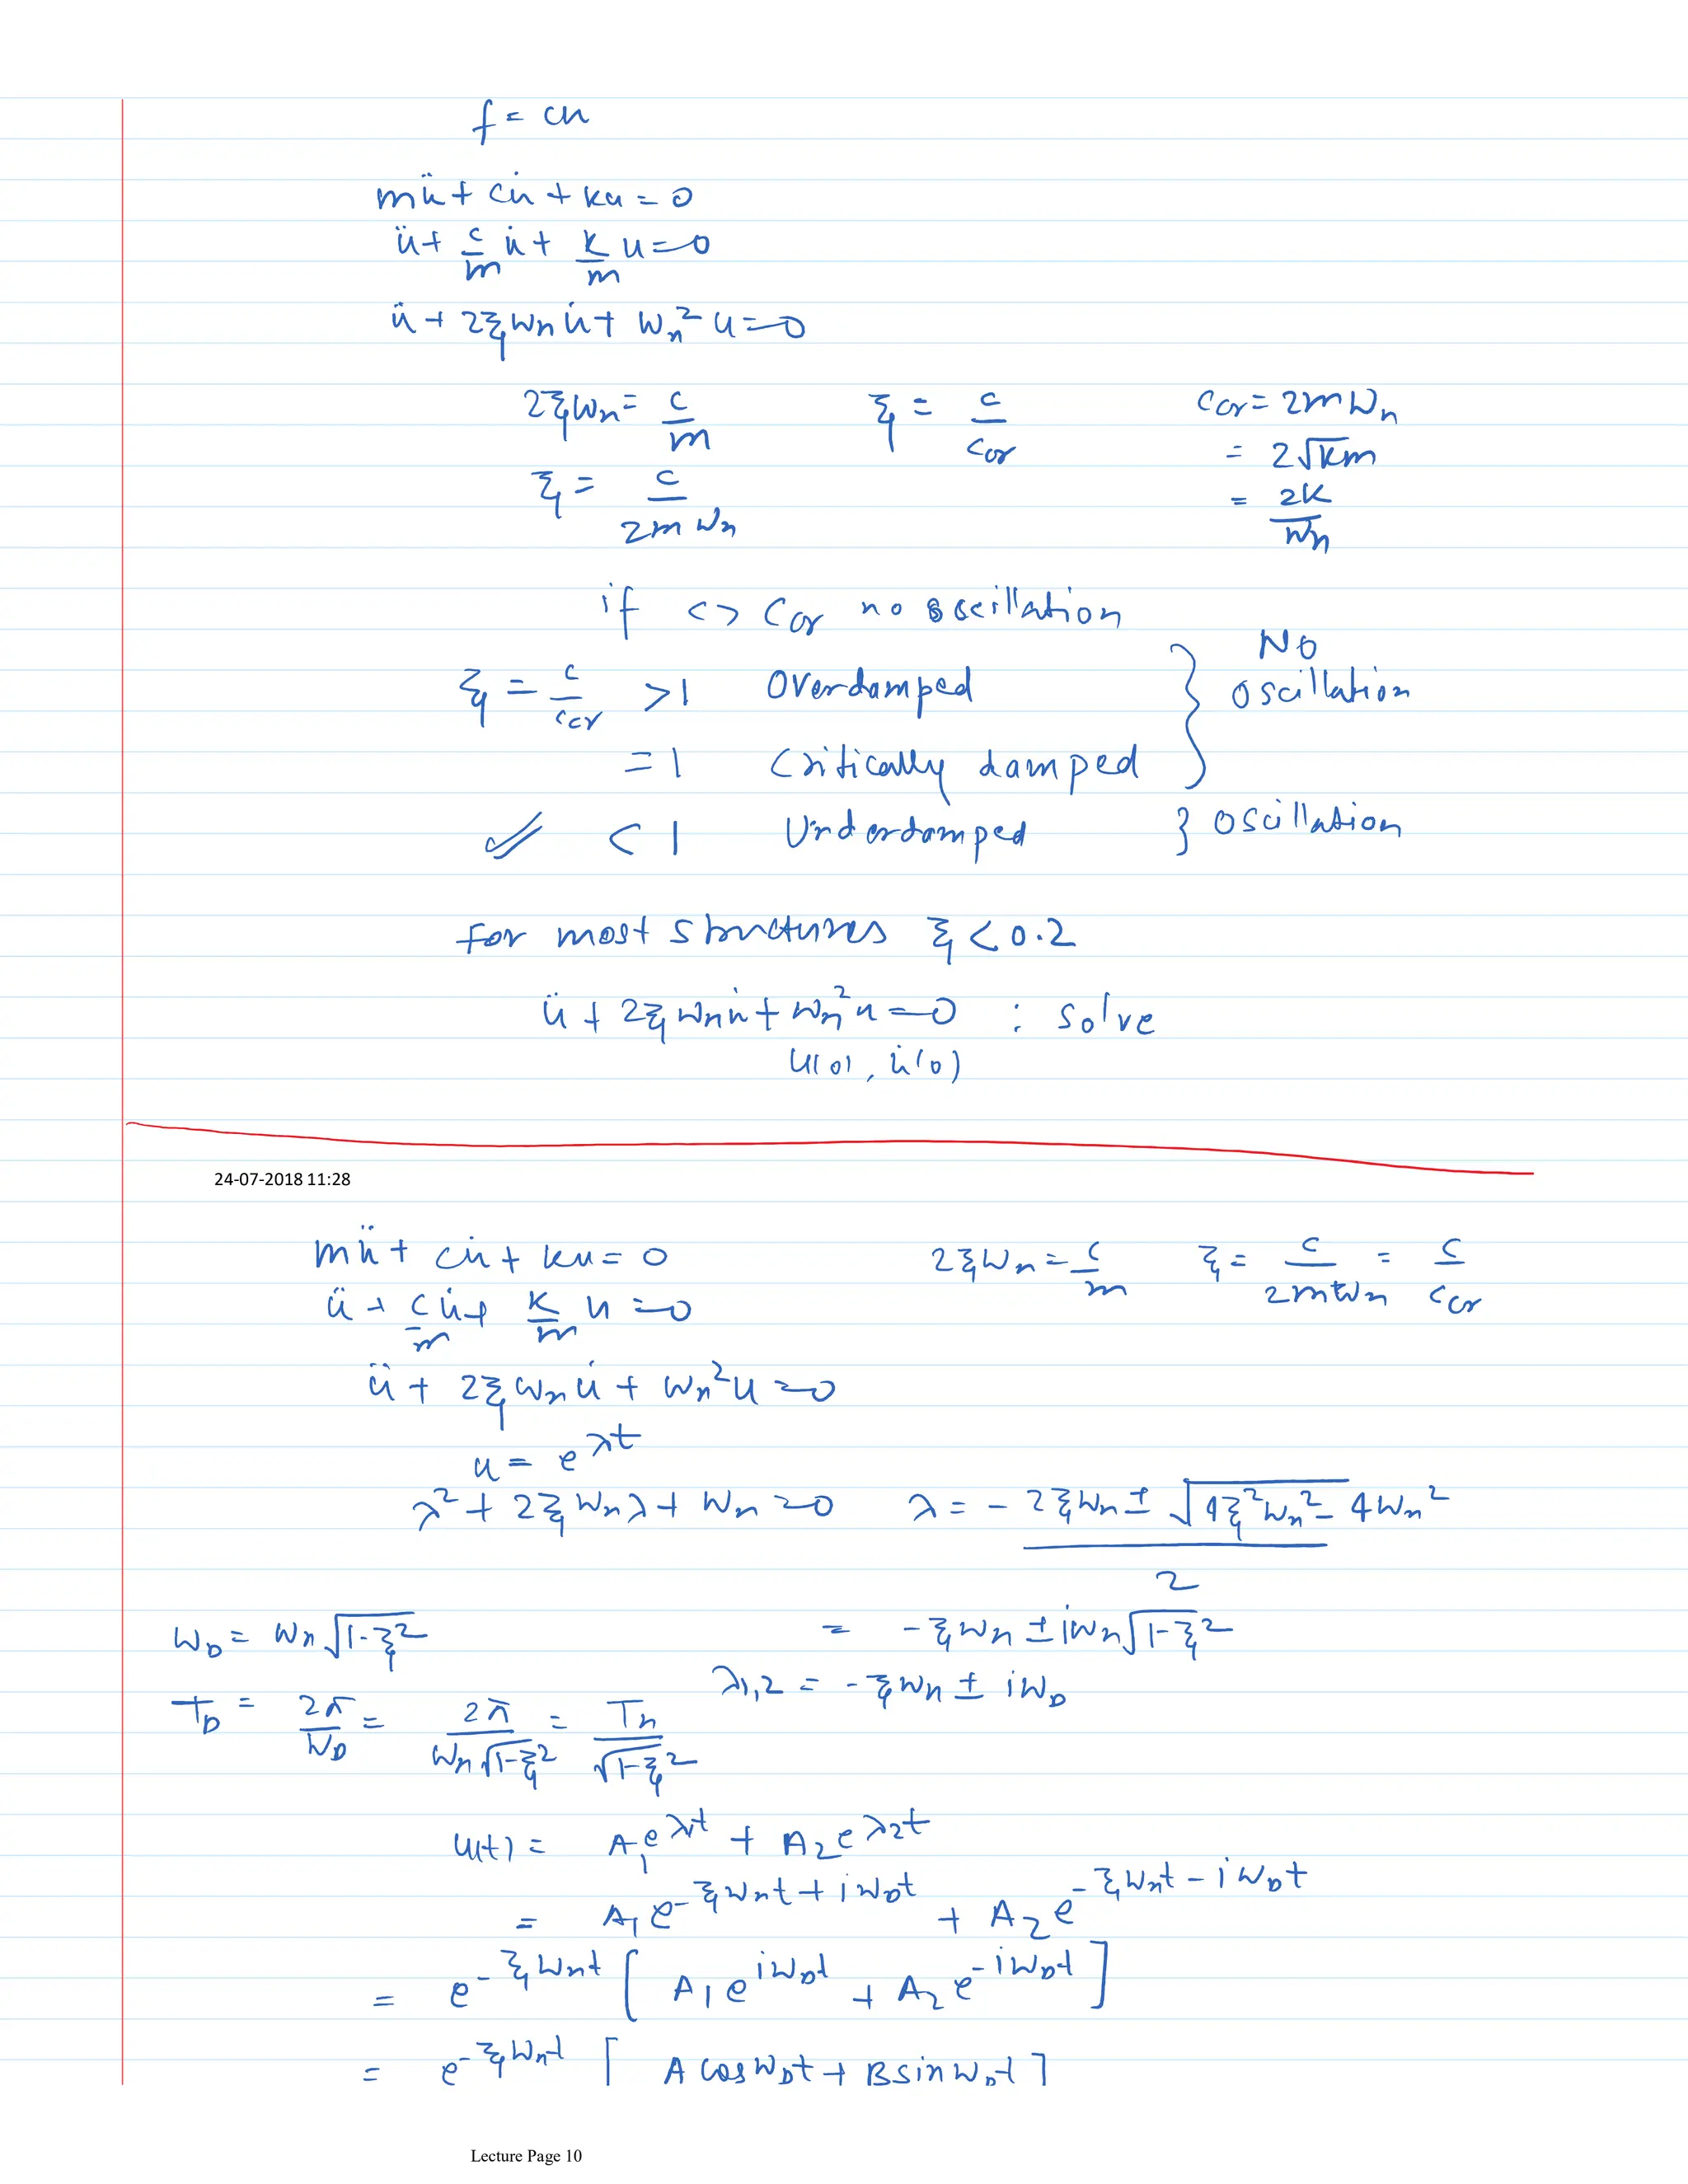 f = cu
mü + cu̇ + ku = 0
ü + c/m u̇ + k/m u = 0
ü + 2ξωn u̇ + ωn² u = 0
2ξωn = c/m    ξ = c/ccr    ccr = 2mωn
ξ = c/(2mωn)    = 2√km
= 2k/ωn
if c > ccr no oscillation
ξ = c/ccr > 1 Overdamped } No oscillation
= 1 Critically damped
✓ < 1 Underdamped } oscillation
For most structures ξ < 0.2
ü + 2ξωn u̇ + ωn² u = 0 : solve
u(0), u̇(0)
24-07-2018 11:28
mü + cu̇ + ku = 0    2ξωn = c/m    ξ = c/(2mωn) = c/ccr
ü + c/m u̇ + k/m u = 0
ü + 2ξωn u̇ + ωn² u = 0
u = e^λt
λ² + 2ξωnλ + ωn = 0    λ = -2ξωn ± √(4ξ²ωn² - 4ωn²) / 2
ωD = ωn√(1-ξ²)    = -ξωn ± iωn√(1-ξ²)
λ1,2 = -ξωn ± iωD
TD = 2π/ωD = 2π/(ωn√(1-ξ²)) = Tn/√(1-ξ²)
u(t) = A1 e^λ1t + A2 e^λ2t
= A1 e^(-ξωnt + iωDt) + A2 e^(-ξωnt - iωDt)
= e^(-ξωnt) [ A1 e^(iωDt) + A2 e^(-iωDt) ]
= e^(-ξωnt) [ A cosωDt + B sinωDt ]
Lecture Page 10